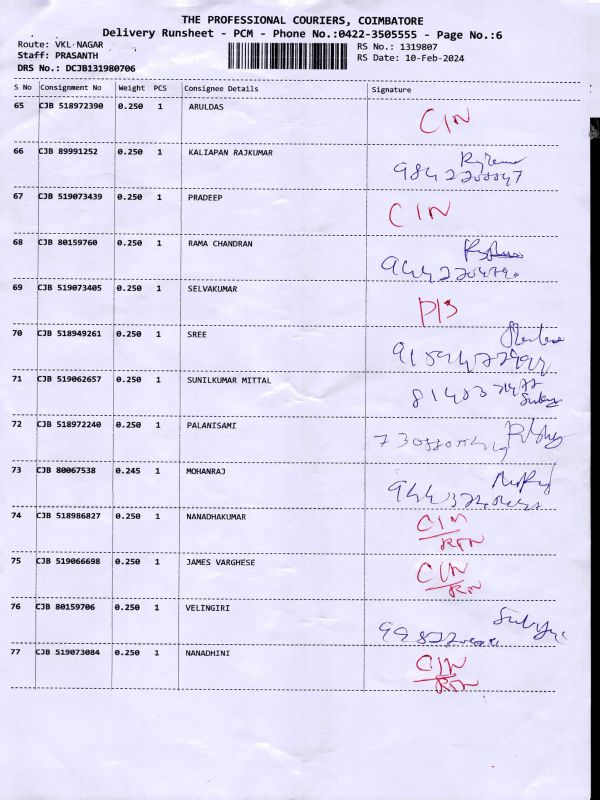 THE PROFESSIONAL COURIERS, COIMBATORE
Delivery Runsheet - PCM - Phone No.:0422-3505555 - Page No.:6
Route: VKL NAGAR
RS No.: 1319807
Staff: PRASANTH
RS Date: 10-Feb-2024
DRS No.: DCJB131980706
S No Consignment No Weight PCS Consignee Details Signature
65 CJB 518972390 0.250 1 ARULDAS CIN
66 CJB 89991252 0.250 1 KALIAPAN RAJKUMAR
67 CJB 519073439 0.250 1 PRADEEP CIN
68 CJB 80159760 0.250 1 RAMA CHANDRAN
69 CJB 519073405 0.250 1 SELVAKUMAR
70 CJB 518949261 0.250 1 SREE
71 CJB 519062657 0.250 1 SUNILKUMAR MITTAL
72 CJB 518972240 0.250 1 PALANISAMI
73 CJB 80067538 0.245 1 MOHANRAJ
74 CJB 518986827 0.250 1 NANADHAKUMAR CIN
RTN
75 CJB 519066698 0.250 1 JAMES VARGHESE CIN
RTN
76 CJB 80159706 0.250 1 VELINGIRI
77 CJB 519073084 0.250 1 NANADHINI CIN
RTN